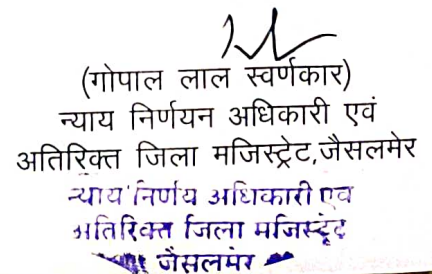 (गोपाल लाल स्वर्णकार)
न्याय निर्णयन अधिकारी एवं
अतिरिक्त जिला मजिस्ट्रेट,जैसलमेर
न्याय निर्णय अधिकारी एव
अतिरिक्त जिला मजिस्ट्रेट
जैसलमेर